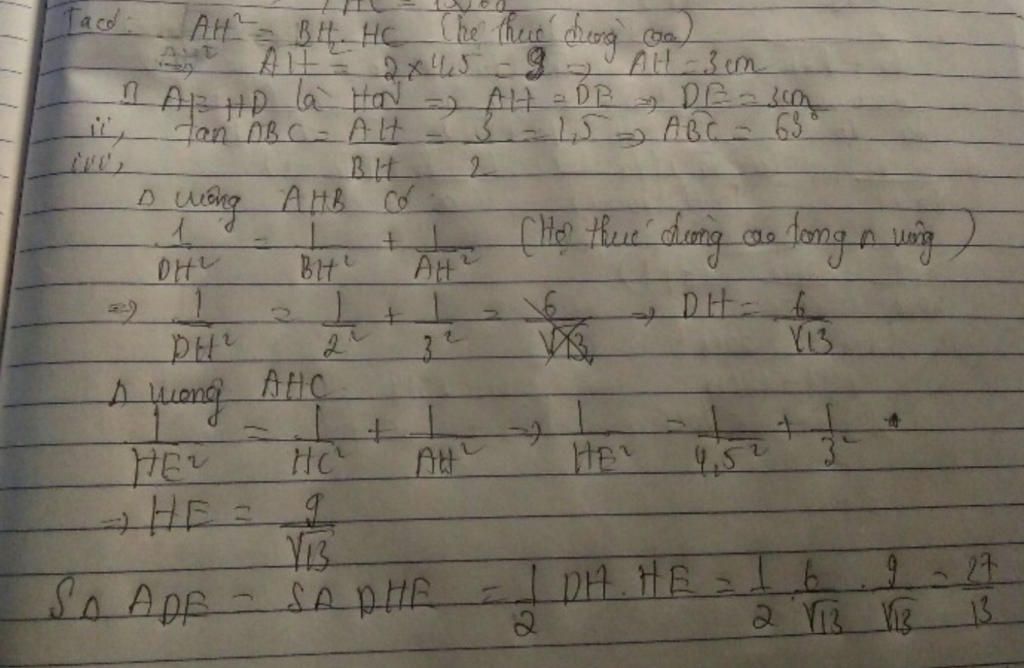 Ta có: AH² = BH. HC (hệ thức đường cao)
AH² = 2 x 4,5 = 9 => AH = 3cm
AEHD là HCN => AH = DE => DE = 3cm
ii, tan ABC = AH/BH = 3/2 = 1,5 => ABC = 63°
iii,
Δ vuông AHB có
1/DH² = 1/BH² + 1/AH² (Hệ thức đường cao trong Δ vuông)
=> 1/DH² = 1/2² + 1/3² = => DH = 6/√13
Δ vuông AHC
1/HE² = 1/HC² + 1/AH² => 1/HE² = 1/4,5² + 1/3²
=> HE = 9/√13
SΔ ADE = SΔ DHE = 1/2 DH.HE = 1/2 6/√13 . 9/√13 = 27/13